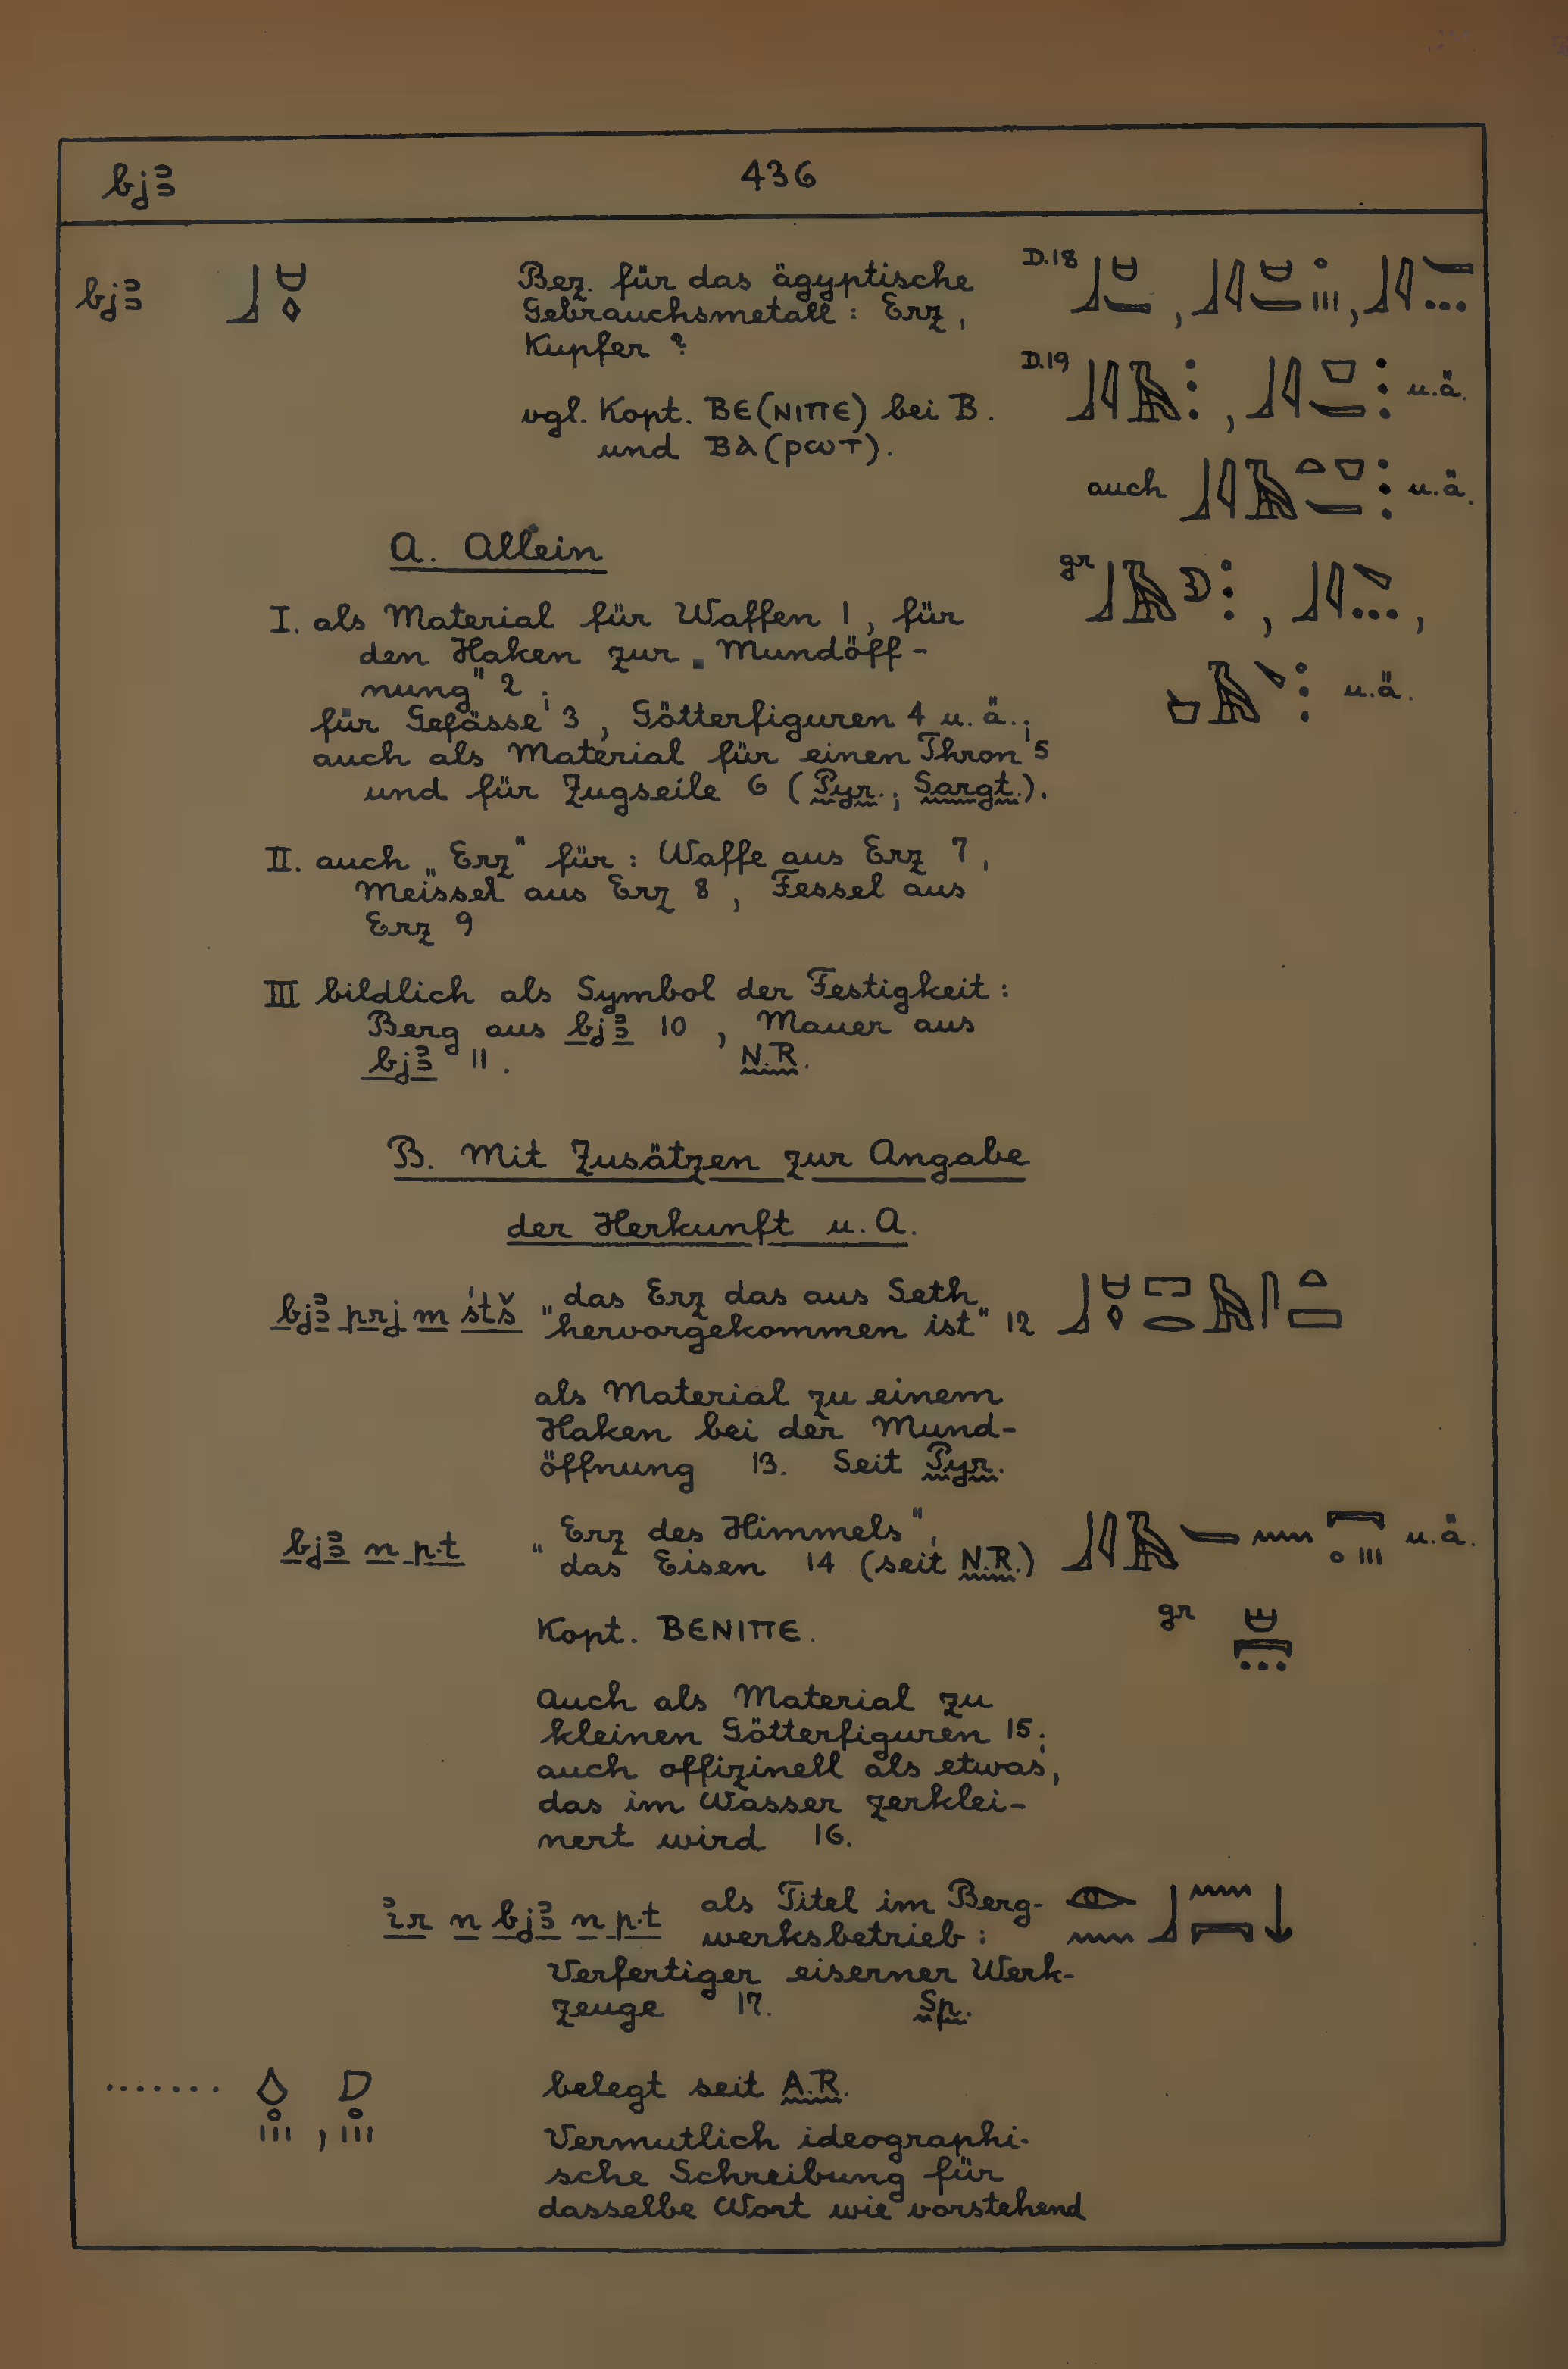 bjꜣ 436
bjꜣ Bez. für das ägyptische
Gebrauchsmetall : Erz,
Kupfer ?
D.18
D.19 u.ä.
vgl. Kopt. ⲂⲈ(ⲚⲒⲠⲈ) bei B.
und ⲂⲀ(ⲢⲰⲦ).
auch u.ä.
A. Allein
gr
I. als Material für Waffen 1, für
den Haken zur „Mundöff-
nung" 2 ;
u.ä.
für Gefässe 3, Götterfiguren 4 u.ä.;
auch als Material für einen Thron 5
und für Zugseile 6 (Pyr.; Sargt.).
II. auch „Erz" für : Waffe aus Erz 7,
Meissel aus Erz 8, Fessel aus
Erz 9
III bildlich als Symbol der Festigkeit :
Berg aus bjꜣ 10, Mauer aus
bjꜣ 11. N.R.
B. Mit Zusätzen zur Angabe
der Herkunft u. A.
bjꜣ prj m śtš „das Erz das aus Seth
hervorgekommen ist" 12
als Material zu einem
Haken bei der Mund-
öffnung 13. Seit Pyr.
bjꜣ n p.t „Erz des Himmels",
das Eisen 14 (seit N.R.) u.ä.
Kopt. ⲂⲈⲚⲒⲠⲈ. gr
Auch als Material zu
kleinen Götterfiguren 15;
auch offizinell als etwas,
das im Wasser zerklei-
nert wird 16.
ꞽr n bjꜣ n p.t als Titel im Berg-
werksbetrieb :
Verfertiger eiserner Werk-
zeuge 17. Sp.
....... belegt seit A.R.
Vermutlich ideographi-
sche Schreibung für
dasselbe Wort wie vorstehend